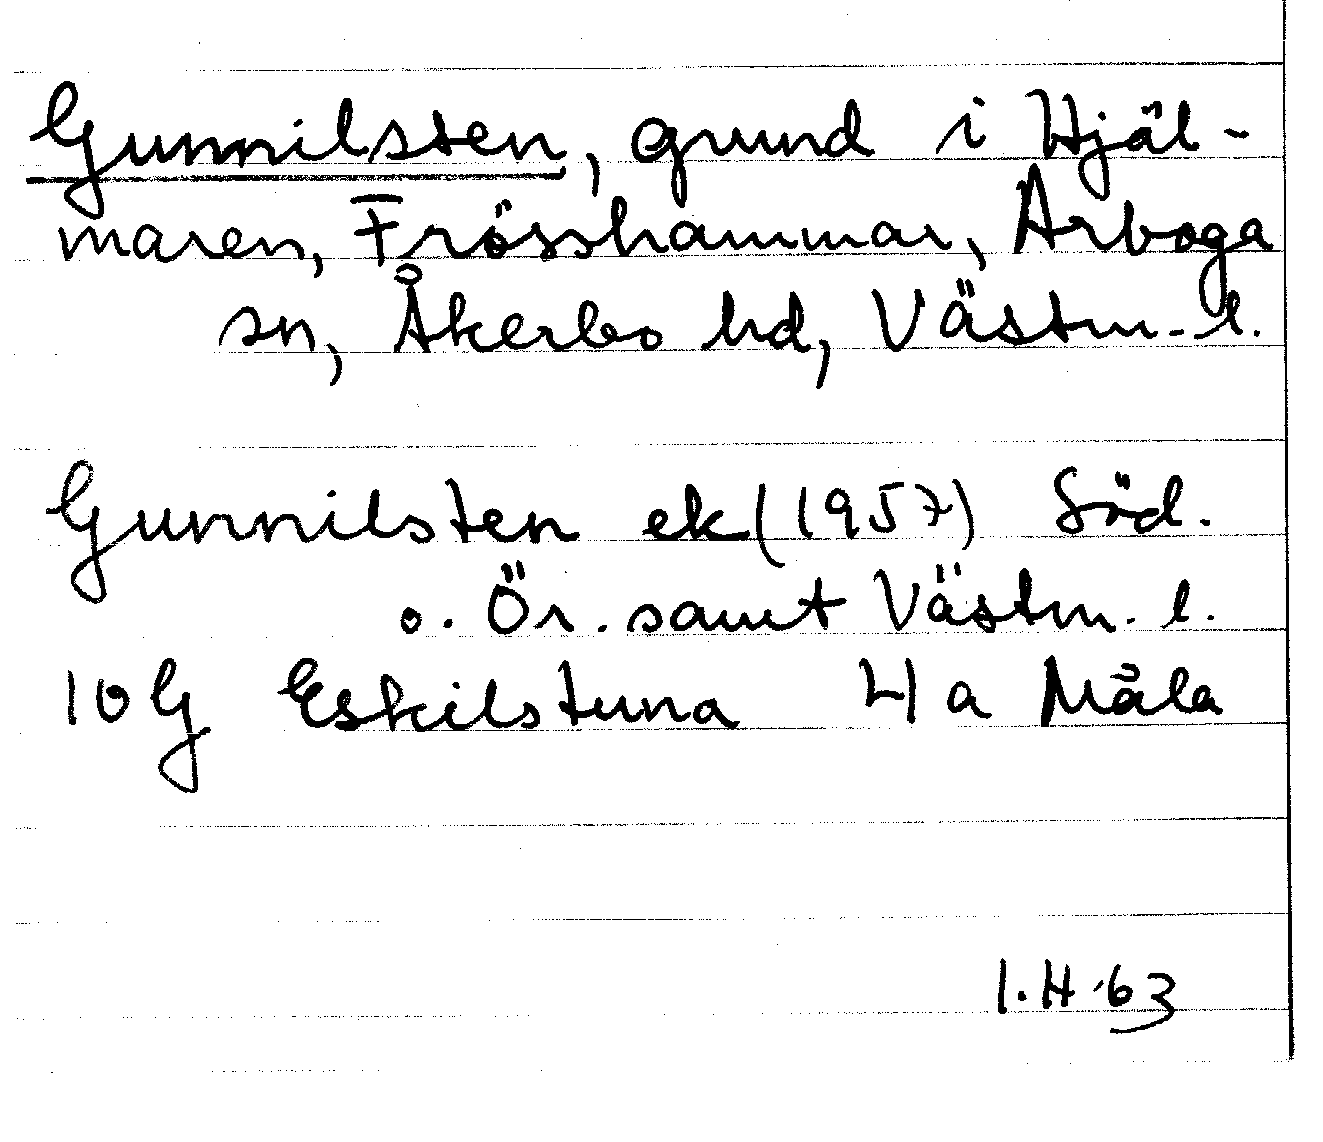 Gunnilsten, grund i Hjäl-
maren, Frösshammar, Arboga
sn, Åkerbo hd, Västm-l.
Gunnilsten ek (1957) Söd.
o. Ör. samt Västm. l.
10G Eskilstuna 4a Måla
I.H 63